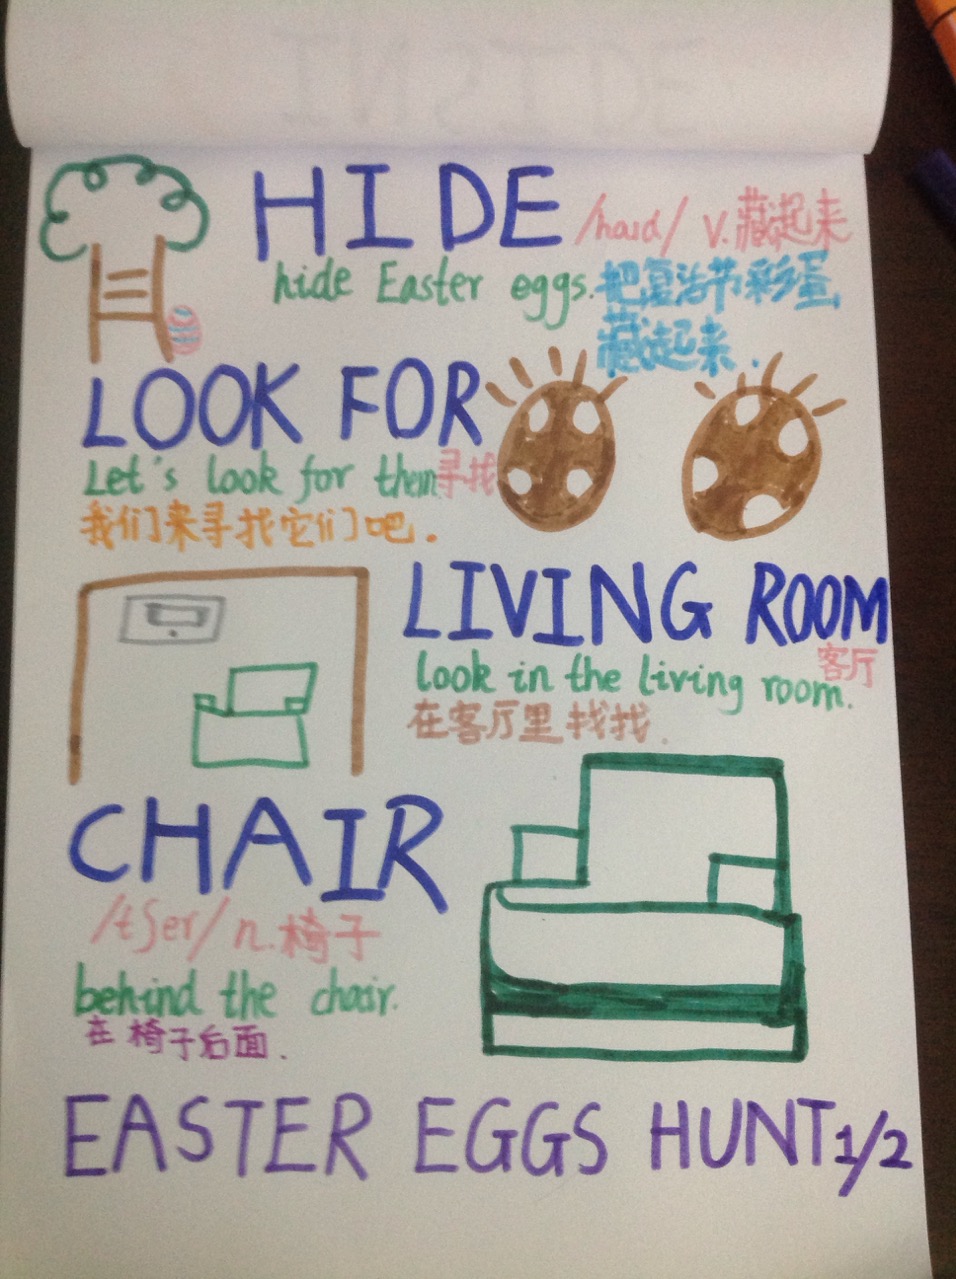 HIDE /haɪd/ v.藏起来
hide Easter eggs.把复活节彩蛋
藏起来.
LOOK FOR
Let's look for them 寻找
我们来寻找它们吧.
LIVING ROOM
客厅
look in the living room.
在客厅里找找.
CHAIR
/tʃer/ n.椅子
behind the chair.
在椅子后面.
EASTER EGGS HUNT 1/2